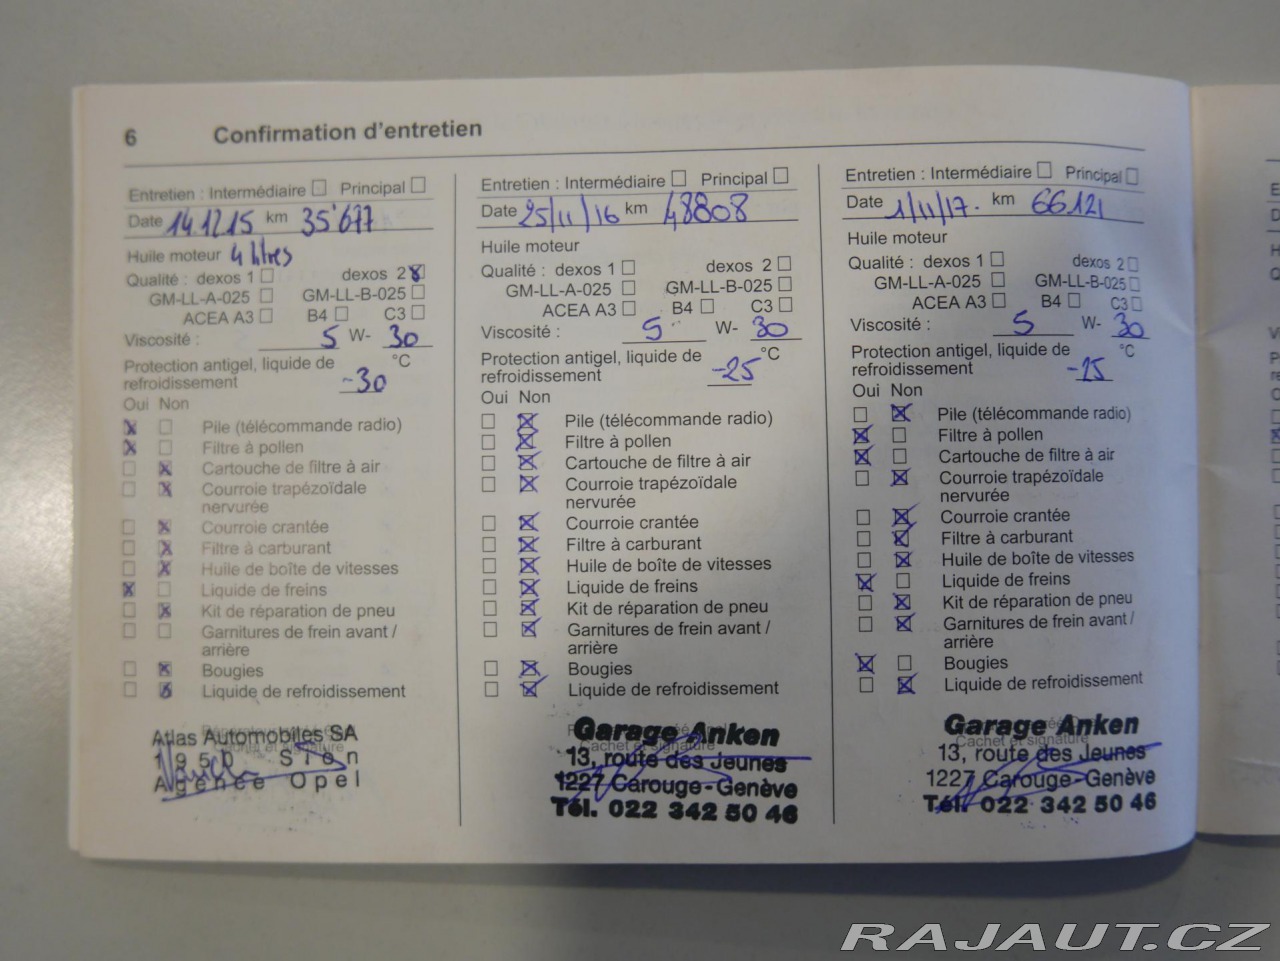 6 Confirmation d'entretien
Entretien : Intermédiaire ☐ Principal ☐
Date 14.12.15 km 35'677
Huile moteur 4 litres
Qualité : dexos 1 ☐ dexos 2 ☒
GM-LL-A-025 ☐ GM-LL-B-025 ☐
ACEA A3 ☐ B4 ☐ C3 ☐
Viscosité : 5 W- 30
Protection antigel, liquide de
refroidissement -30 °C
Oui Non
☒ ☐ Pile (télécommande radio)
☒ ☐ Filtre à pollen
☐ ☒ Cartouche de filtre à air
☐ ☒ Courroie trapézoïdale
nervurée
☐ ☒ Courroie crantée
☐ ☒ Filtre à carburant
☐ ☒ Huile de boîte de vitesses
☒ ☐ Liquide de freins
☐ ☒ Kit de réparation de pneu
☐ ☐ Garnitures de frein avant /
arrière
☐ ☒ Bougies
☐ ☒ Liquide de refroidissement
Atlas Automobiles SA
1950 Sion
Agence Opel
Entretien : Intermédiaire ☐ Principal ☐
Date 25/11/16 km 48808
Huile moteur
Qualité : dexos 1 ☐ dexos 2 ☐
GM-LL-A-025 ☐ GM-LL-B-025 ☐
ACEA A3 ☐ B4 ☐ C3 ☐
Viscosité : 5 W- 30
Protection antigel, liquide de
refroidissement -25 °C
Oui Non
☐ ☒ Pile (télécommande radio)
☐ ☒ Filtre à pollen
☐ ☒ Cartouche de filtre à air
☐ ☒ Courroie trapézoïdale
nervurée
☐ ☒ Courroie crantée
☐ ☒ Filtre à carburant
☐ ☒ Huile de boîte de vitesses
☐ ☒ Liquide de freins
☐ ☒ Kit de réparation de pneu
☐ ☒ Garnitures de frein avant /
arrière
☐ ☒ Bougies
☐ ☒ Liquide de refroidissement
Garage Anken
Cachet et signature
13, route des Jeunes
1227 Carouge-Genève
Tél. 022 342 50 46
Entretien : Intermédiaire ☐ Principal ☐
Date 1/11/17. km 66.121
Huile moteur
Qualité : dexos 1 ☐ dexos 2 ☐
GM-LL-A-025 ☐ GM-LL-B-025 ☐
ACEA A3 ☐ B4 ☐ C3 ☐
Viscosité : 5 W- 30
Protection antigel, liquide de
refroidissement -25 °C
Oui Non
☐ ☒ Pile (télécommande radio)
☒ ☐ Filtre à pollen
☒ ☐ Cartouche de filtre à air
☐ ☒ Courroie trapézoïdale
nervurée
☐ ☒ Courroie crantée
☐ ☒ Filtre à carburant
☐ ☒ Huile de boîte de vitesses
☒ ☐ Liquide de freins
☐ ☒ Kit de réparation de pneu
☐ ☒ Garnitures de frein avant /
arrière
☒ ☐ Bougies
☐ ☒ Liquide de refroidissement
Garage Anken
Cachet et signature
13, route des Jeunes
1227 Carouge-Genève
Tél. 022 342 50 46
RAJAUT.CZ